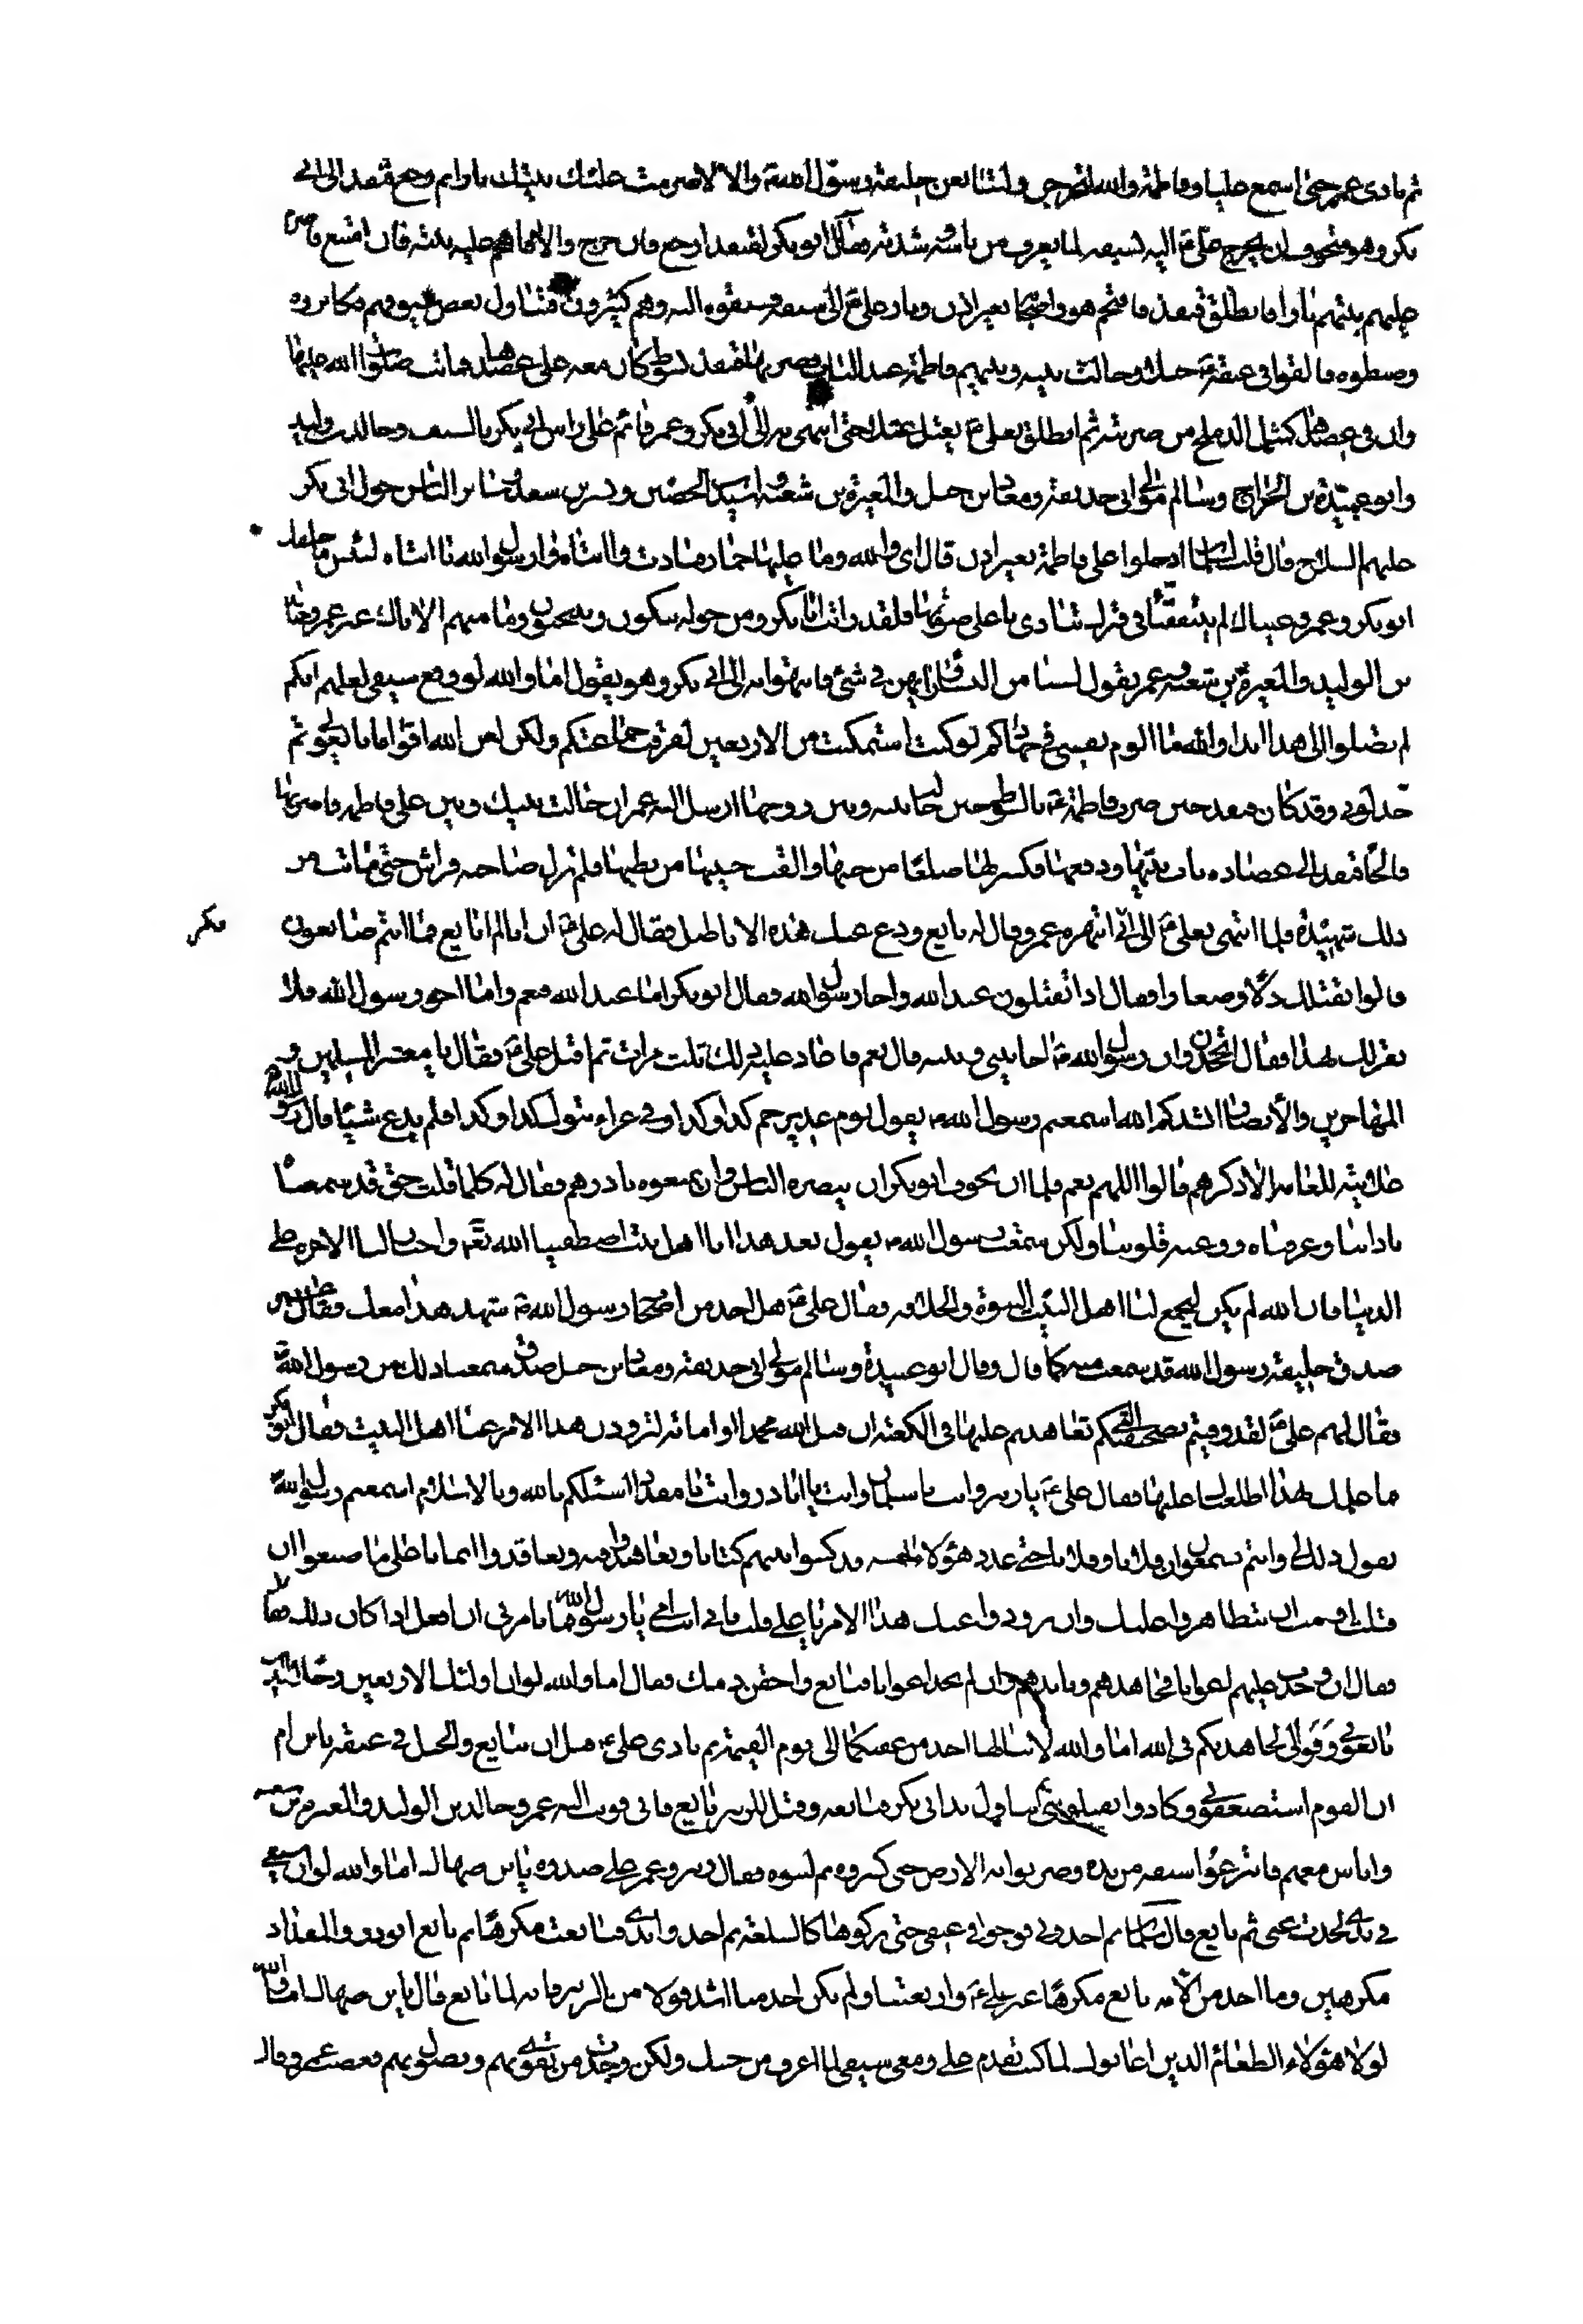 ثم نادى عمر حتى اسمع عليا وفاطمة والله لتخرجن ولتبايعن خليفة رسول الله والا لاضرمت عليك بيتك نارا ثم رجع قنفد الى ابي
بكر وهو متخوف ان يخرج علي ع اليه بسيفه لما يعرف من باسه وشدته فقال ابو بكر لقنفد ارجع فان خرج والا فاقتحم عليه بيته فان امتنع فاضرم
عليهم بيتهم نارا فانطلق قنفذ فاقتحم هو واصحابه بغير اذن وثار علي ع الى سيفه فسبقوه اليه وهم كثيرون فتناول بعض سيوفهم فكاثروه
وضبطوه فالقوا في عنقه حبلا وحالت بينه وبينهم فاطمة عند الباب فضربها قنفذ بسوط كان معه على عضدها فماتت صلوات الله عليها
وان في عضدها كمثل الدملج من ضربته ثم انطلق بعلي ع يعتل عتلا حتى انتهى به الى ابي بكر وعمر قائم على راس ابي بكر بالسيف وخالد بن وليد
وابو عبيدة بن الجراح وسالم مولى ابي حذيفة ومعاذ بن جبل والمغيرة بن شعبة واسيد بن الحضين وبشر بن سعد وساير الناس حول ابي بكر
عليهم السلاح قال قلت لسلمان ادخلوا على فاطمة بغير اذن قال اي والله وما عليها خمار فنادت وا ابتاه وا رسول الله يا ابتاه لبئس ما خلفك
ابو بكر وعمر وعيناك لم يتفقئا في قبرك تنادي باعلى صوتها فلقد رايت ابا بكر ومن حوله يبكون وينتحبون وما منهم الا باك غير عمر وخالد
بن الوليد والمغيرة بن شعبة وعمر يقول لسنا من النساء ورايهن في شئ فانتهوا به الى ابي بكر وهو يقول اما والله لو وقع سيفي لعلمتم انكم
لم تصلوا الى هذا ابدا والله ما الوم نفسي في جهادكم لو كنت استمكنت من الاربعين لفرقت جماعتكم ولكن لعن الله اقواما بايعوني ثم
خذلوني وقد كان قنفد حين ضرب فاطمة ع بالسوط حين حالت بينه وبين زوجها ارسل اليه عمر ان حالت بينك وبين علي فاطمة فاضربها
فالجاها قنفد الى عضادة باب بيتها ودفعها فكسر لها ضلعا من جنبها والقت جنينها من بطنها فلم تزل صاحبه فراش حتى ماتت من
ذلك شهيدة فلما انتهى بعلي ع الى ابي انتهره عمر وقال له بايع ودع عنك هذه الاباطيل فقال له علي ع ان انا لم ابايع فما انتم صانعون
بكر
قالوا نقتلك ذلا وصغارا فقال اذا تقتلون عبد الله واخا رسول الله فقال ابو بكر اما عبد الله فنعم واما اخو رسول الله فلا
نقر لك بهذا فقال اتجحدون ان رسول الله ص اخا بيني وبينه قال نعم فاعاد عليه ذلك ثلث مرات ثم اقبل علي ع فقال يا معشر المسلمين و
المهاجرين والانصار انشدكم الله اسمعتم رسول الله ص يقول يوم غدير خم كذا وكذا وفي غزاة تبوك كذا وكذا فلم يدع شيئا قال رسول الله
علانيته للعامة الا ذكرهم قالوا اللهم نعم فلما ان تخوف ابو بكر ان ينصره الناس وان يمنعوه بادرهم فقال له كلما قلت حق قد سمعناه
باذاننا وعرفناه ووعته قلوبنا ولكن سمعت رسول الله ص يقول بعد هذا انا اهل بيت اصطفينا الله تعالى واختار لنا الاخرة على
الدنيا فان الله لم يكن ليجمع لنا اهل البيت النبوة والخلافة فقال علي ع هل احد من اصحاب رسول الله ص شهد هذا معك فقال عمر
صدق خليفة رسول الله قد سمعت منه كما قال وقال ابو عبيدة وسالم مولى ابي حذيفة ومعاذ بن جبل صدق قد سمعنا ذلك من رسول الله
فقال لهم علي ع لقد وفيتم بصحيفتكم تعاهدتم عليها في الكعبة ان قتل الله محمدا او اماته لتزوون هذا الامر عنا اهل البيت فقال ابو بكر
ما علمك بهذا اطلعناك عليها فقال علي ع يا زبير وانت يا سلمان وانت يا ابا ذر وانت يا مقداد اسئلكم بالله وبالاسلام اسمعتم رسول الله
يقول ذلك لي وانتم تسمعون ان فلانا وفلانا حتى عدد هؤلاء الخمسه قد كتبوا بينهم كتابا وتعاهدوا فيه وتعاقدوا ايمانا على ما صنعوا ان
قتلت او مت ان يتظاهروا عليك وان يزووا عنك هذا الامر يا علي قلت بابي انت وامي يا رسول الله فما تامرني ان افعل اذا كان ذلك فقال
فقال ان وجدت عليهم اعوانا فجاهدهم ونابذهم وان لم تجد اعوانا فبايع واحقن دمك فقال اما والله لو ان اولئك الاربعين رجلا الذين
بايعوني وفوا لي لجاهدتكم في الله اما والله لا ينالها احد من عقبكما الى يوم القيمة ثم نادى علي ع قبل ان يبايع والحبل في عنقه يا بن ام
ان القوم استضعفوني وكادوا يقتلونني ثم تناول يد ابي بكر فبايعه وقيل للزبير بايع فابى فوثب اليه عمر وخالد بن الوليد والمغيرة بن شعبه
واناس معهم فانتزعوا سيفه من يده وضربوا به الارض حتى كسروه ثم لببوه فقال زبير وعمر على صدره يا بن صهاك اما والله لو ان سيفي
في يدي لحدت عني ثم بايع قال سلمان ثم اخذوني فوجوا في عنقي حتى تركوها كالسلعة ثم اخذوا يدي فبايعت مكرها ثم بايع ابو ذر والمقداد
مكرهين وما احد من الامه بايع مكرها غير علي ع واربعتنا ولم يكن احد منا اشد قولا من الزبير فانه لما بايع قال يا بن صهاك اما والله
لولا هؤلاء الطغام الذين اعانوك لما كنت تقدم علي ومعي سيفي لما اعرف من جبنك ولكن وجدت من تقوى بهم وتصول بهم فغضب عمر وقال